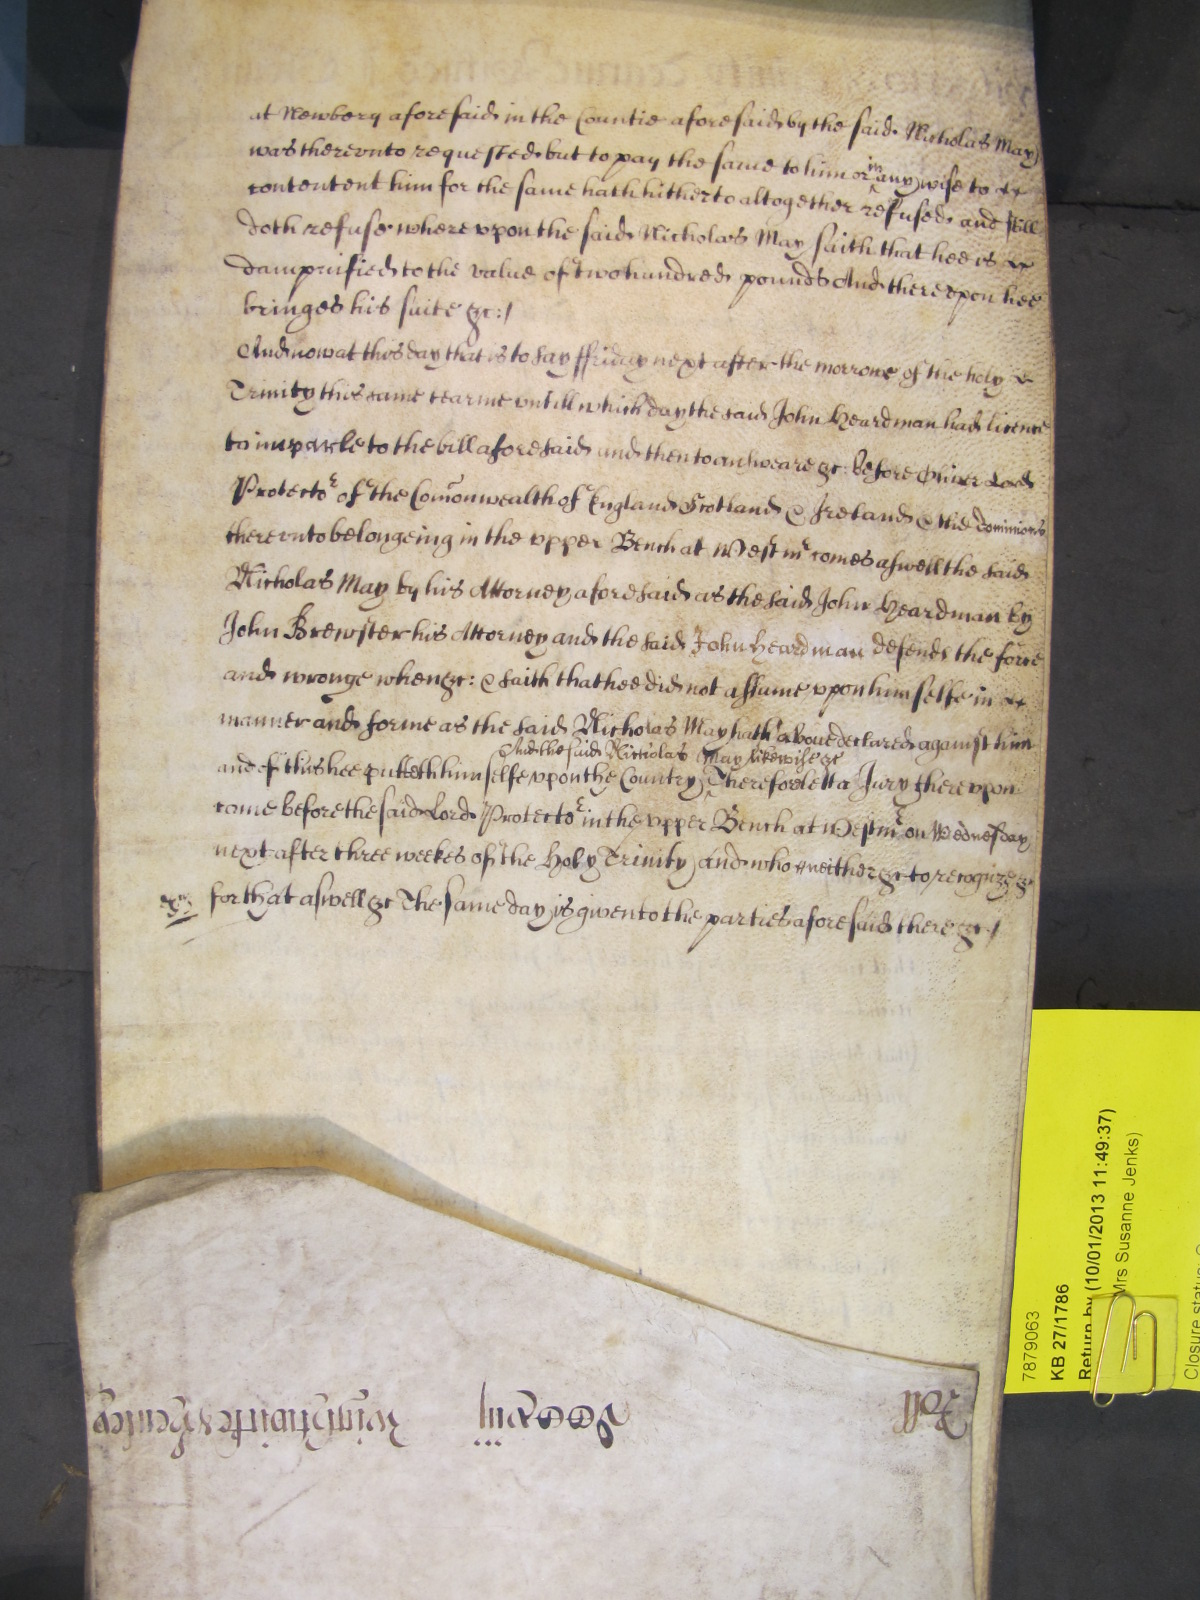 at Newbery aforesaid in the Countie aforesaid by the said Nicholas May
was therevnto requested but to pay the same to him or in any wise to
contentent him for the same hath hitherto altogether refused and still
doth refuse where vpon the said Nicholas May saith that hee is
dampnified to the value of two hundred pounds And there vpon hee
bringes his suite &c:/
And now at this day that is to say ffriday next after the morrow of the holy
Trinity this same tearme vntill which day the said John Heardman had licence
to imparle to the bill aforesaid and then to answeare &c: before Oliver Lord
Protector of the Comonwealth of England Scotland & Ireland & the dominions
therevnto belongeing in the vpper Bench at Westmr comes aswell the said
Nicholas May by his Attorney aforesaid as the said John Heardman by
John Brewster his Attorney and the said John Heardman defends the force
and wronge when &c: & saith that hee did not assume vpon himselfe in
manner and forme as the said Nicholas May hath aboue declared against him
And the said Nicholas May likewise &c
and of this hee putteth himselfe vpon the Country Therefore lett a Jury there vpon
come before the said Lord Protector in the vpper Bench at Westmr on Wednesday
next after three weekes of the Holy Trinity and who neither &c to recognize &c
for that aswell &c The same day is given to the parties aforesaid there &c:/
7879063
KB 27/1786
Return by (10/01/2013 11:49:37)
Mrs Susanne Jenks)
Closure status:
Roll